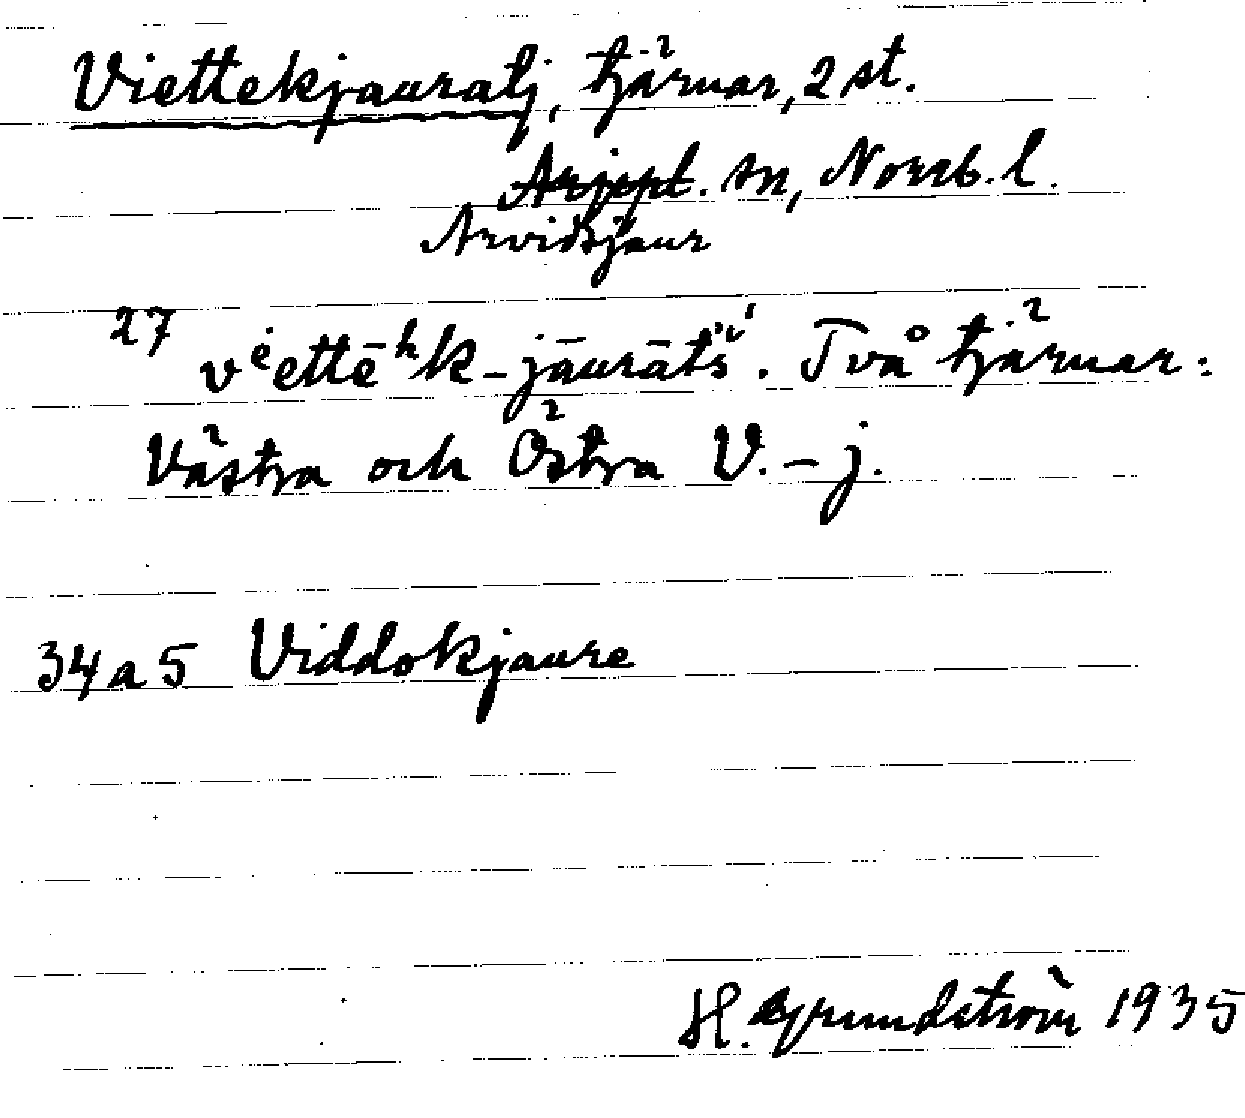 Viettekjauratj, tjärnar, 2 st.
Arjepl. sn, Norrb. l.
Arvidsjaur
27 vᵉettēʰk-jāurātš'. Två tjärnar:
Västra och Östra V.-j.
34a5 Viddokjaure
H. Grundström 1935